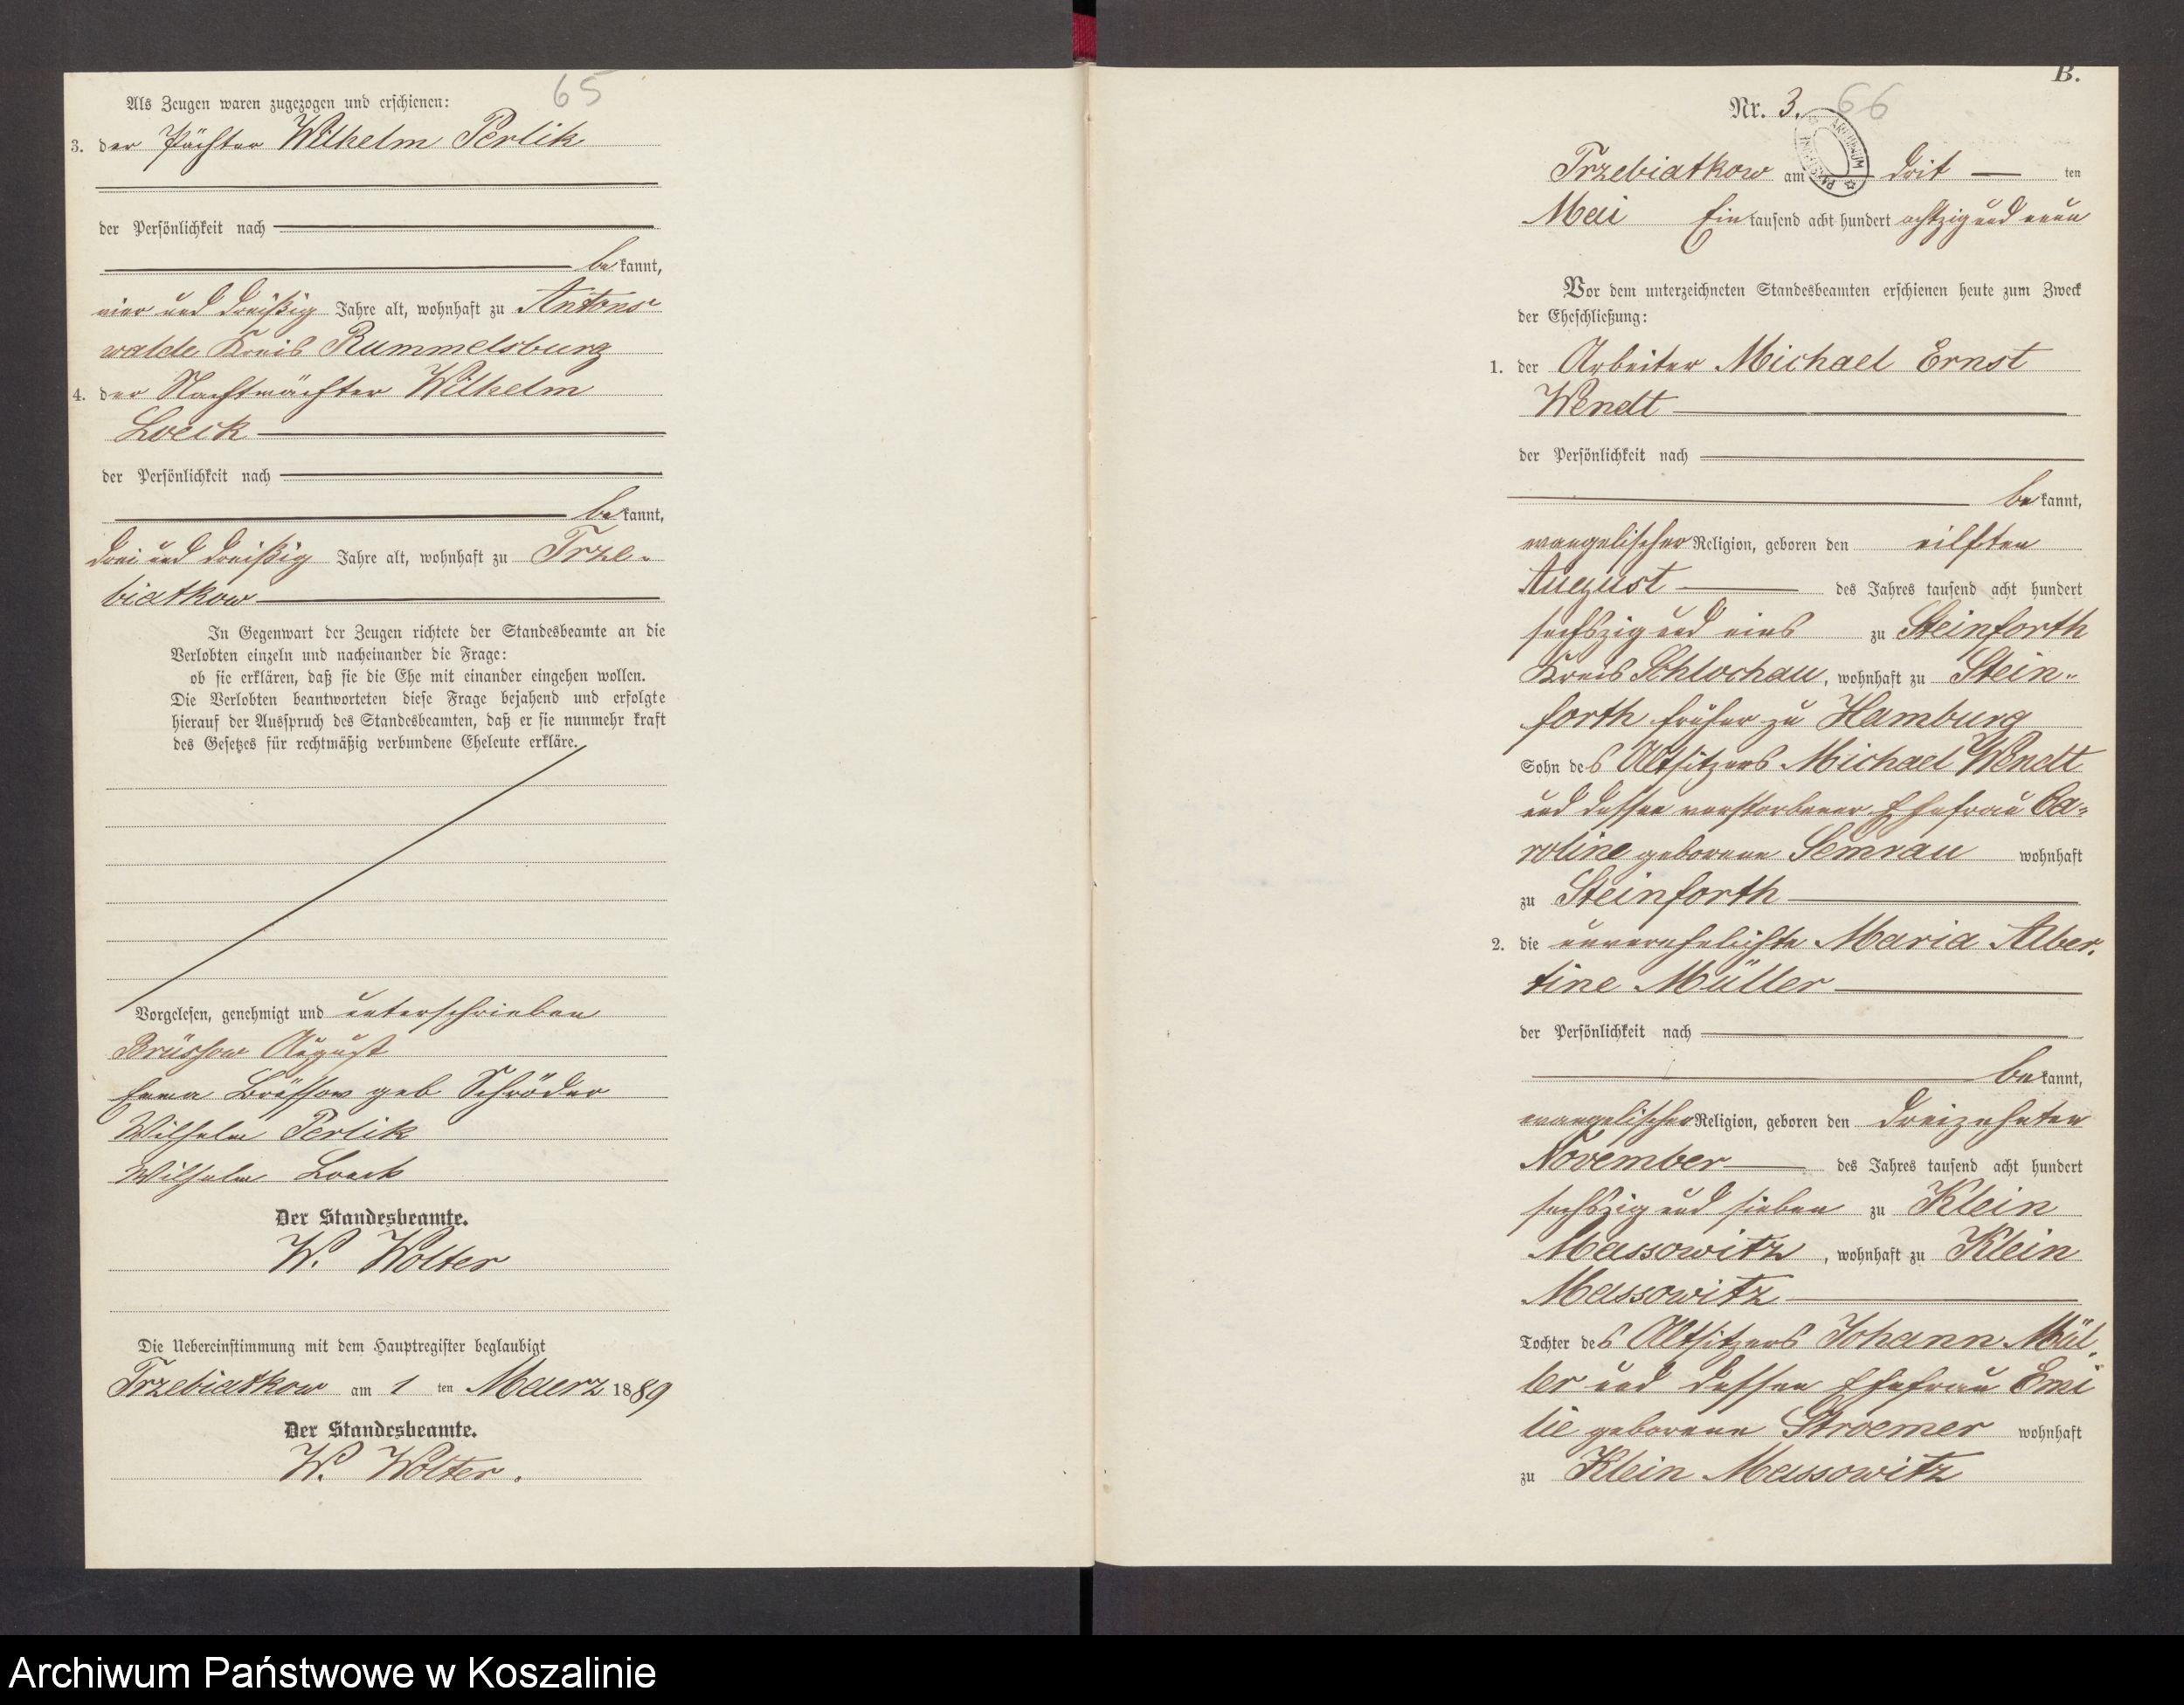 65
Als Zeugen waren zugezogen und erschienen:
3. der Pächter Wilhelm Perlik
der Persönlichkeit nach
bekannt,
vier und dreißig Jahre alt, wohnhaft zu Antons-
walde Kreis Rummelsburg
4. der Nachtwächter Wilhelm
Loeck
der Persönlichkeit nach
bekannt,
drei und dreißig Jahre alt, wohnhaft zu Trze-
biatkow
In Gegenwart der Zeugen richtete der Standesbeamte an die
Verlobten einzeln und nacheinander die Frage:
ob sie erklären, daß sie die Ehe mit einander eingehen wollen.
Die Verlobten beantworteten diese Frage bejahend und erfolgte
hierauf der Ausspruch des Standesbeamten, daß er sie nunmehr kraft
des Gesetzes für rechtmäßig verbundene Eheleute erkläre.
Vorgelesen, genehmigt und unterschrieben
Brüssow August
Emma Brüssow geb Schröder
Wilhelm Perlik
Wilhelm Loeck
Der Standesbeamte.
W. Wolter
Die Uebereinstimmung mit dem Hauptregister beglaubigt
Trzebiatkow am 1 ten Maerz 1889
Der Standesbeamte.
W. Wolter.
B.
Nr. 3. 66
ARCHIWUM
Trzebiatkow am drit ten
Mai Ein tausend acht hundert achtzig und neun
Vor dem unterzeichneten Standesbeamten erschienen heute zum Zweck
der Eheschließung:
1. der Arbeiter Michael Ernst
Wendt
der Persönlichkeit nach
bekannt,
evangelischer Religion, geboren den eilften
August des Jahres tausend acht hundert
sechszig und eins zu Steinforth
Kreis Schlochau, wohnhaft zu Stein-
forth früher zu Hamburg
Sohn des Altsitzers Michael Wendt
und dessen verstorbener Ehefrau Ca-
roline geborene Semrau wohnhaft
zu Steinforth
2. die unverehelichte Maria Alber-
tine Müller
der Persönlichkeit nach
bekannt,
evangelischer Religion, geboren den dreizehnten
November des Jahres tausend acht hundert
sechszig und sieben zu Klein
Massowitz, wohnhaft zu Klein
Massowitz
Tochter des Altsitzers Johann Mül-
ler und dessen Ehefrau Emi
lie geborene Stroemer wohnhaft
zu Klein Massowitz
Archiwum Państwowe w Koszalinie